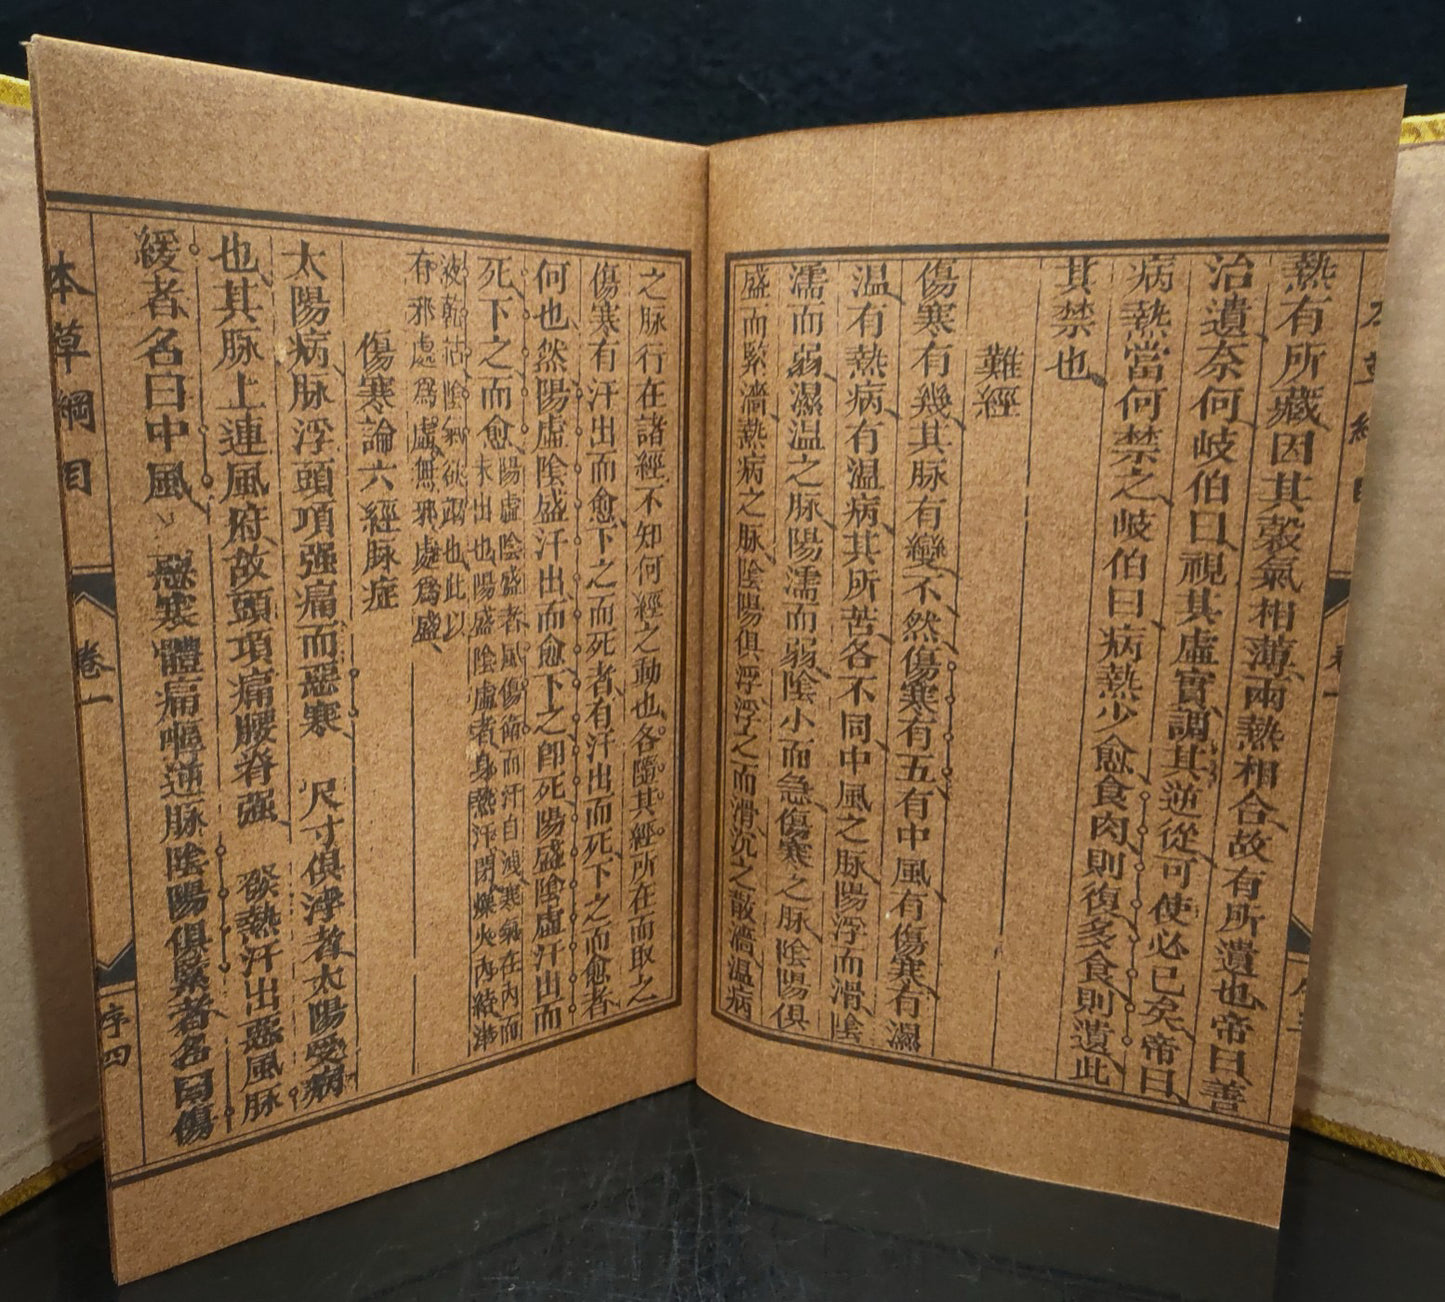 熱有所藏因其穀氣相薄兩熱相合故有所遺也帝曰善
治遺奈何岐伯曰視其虛實調其逆從可使必已矣帝曰
病熱當何禁之岐伯曰病熱少愈食肉則復多食則遺此
其禁也
難經
傷寒有幾其脉有變不然傷寒有五有中風有傷寒有濕
温有熱病有温病其所苦各不同中風之脉陽浮而滑陰
濡而弱濕温之脉陽濡而弱陰小而急傷寒之脉陰陽俱
盛而緊濇熱病之脉陰陽俱浮浮之而滑沉之散濇温病
之脉行在諸經不知何經之動也各隨其經所在而取之
傷寒有汗出而愈下之而死者有汗出而死下之而愈者
何也然陽虛陰盛汗出而愈下之即死陽盛陰虛汗出而
死下之而愈
陽虛陰盛者風傷衛而汗自洩寒氣在内而
未出也陽盛陰虛者身熱汗閉爍火内綾津
液乾祜陰氣欲凅也此以
存邪處爲虛無邪處爲盛
傷寒論六經脉症
太陽病脉浮頭項强痛而惡寒 尺寸俱浮者太陽受病
也其脉上連風府故頭項痛腰脊强 發熱汗出惡風脉
緩者名曰中風 惡寒體痛嘔逆脉陰陽俱緊者名曰傷
本草綱目
卷一
序四